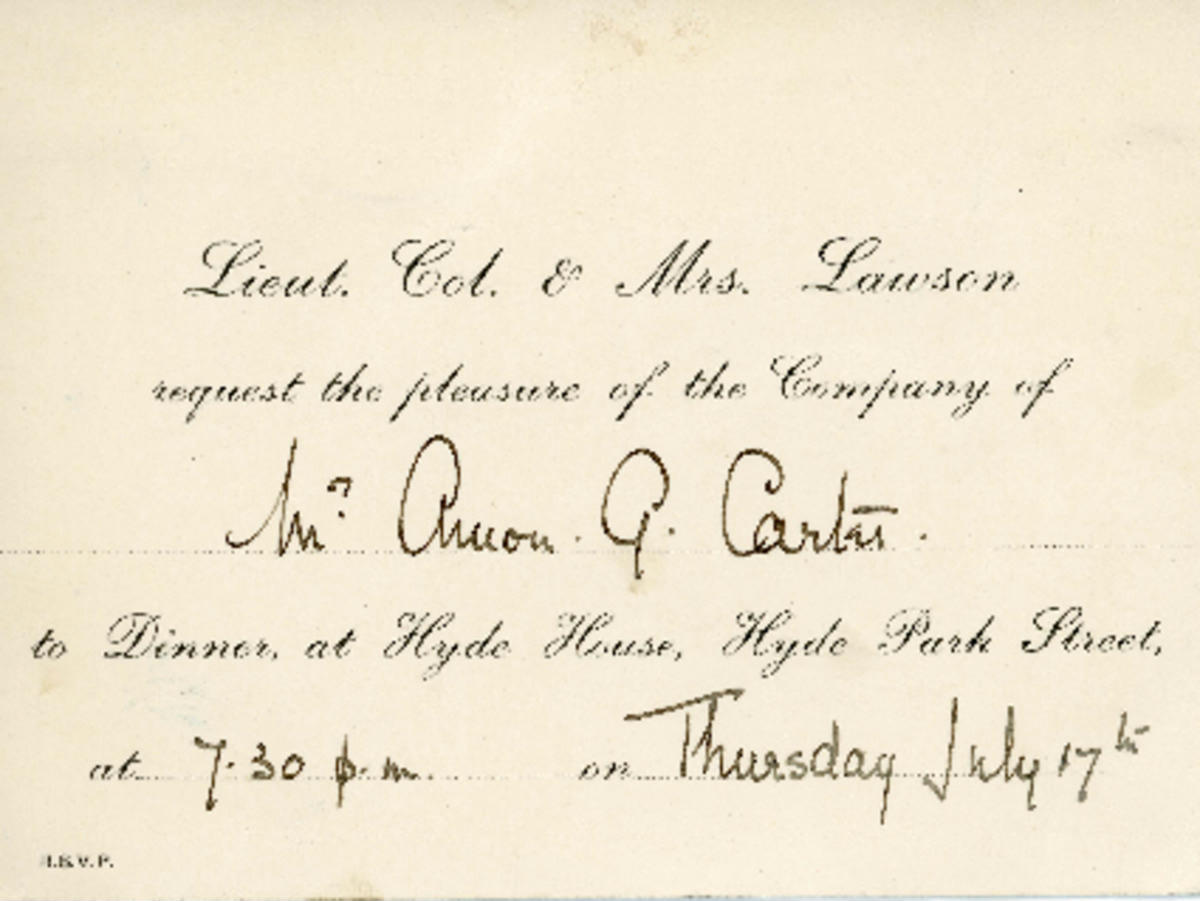 Lieut. Col. & Mrs. Lawson
request the pleasure of the Company of
Mr. Amon. G. Carter.
to Dinner, at Hyde House, Hyde Park Street,
at 7.30 p.m. on Thursday July 17th
R.S.V.P.